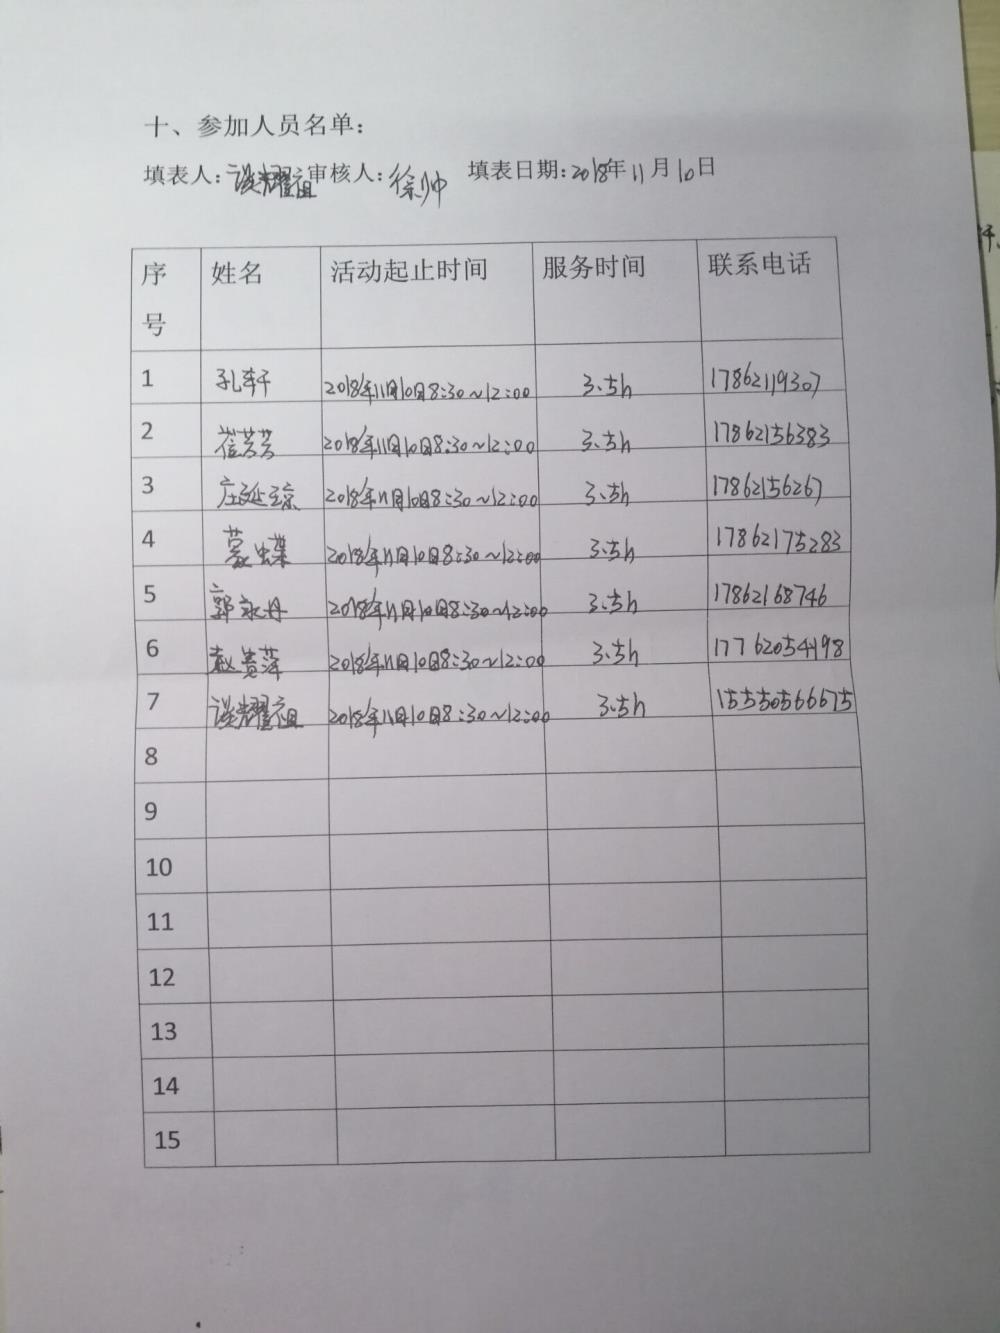 十、参加人员名单：
填表人：谈耀祖 审核人：徐帅 填表日期：2018年11月10日
序号 姓名 活动起止时间 服务时间 联系电话
1 孔轩 2018年11月10日8:30~12:00 3.5h 17862119307
2 崔芳芳 2018年11月10日8:30~12:00 3.5h 17862156383
3 庄延琼 2018年11月10日8:30~12:00 3.5h 17862156267
4 蒙蝶 2018年11月10日8:30~12:00 3.5h 17862175283
5 郭永丹 2018年11月10日8:30~12:00 3.5h 17862168746
6 赵赛萍 2018年11月10日8:30~12:00 3.5h 17762054498
7 谈耀祖 2018年11月10日8:30~12:00 3.5h 15550566675
8
9
10
11
12
13
14
15